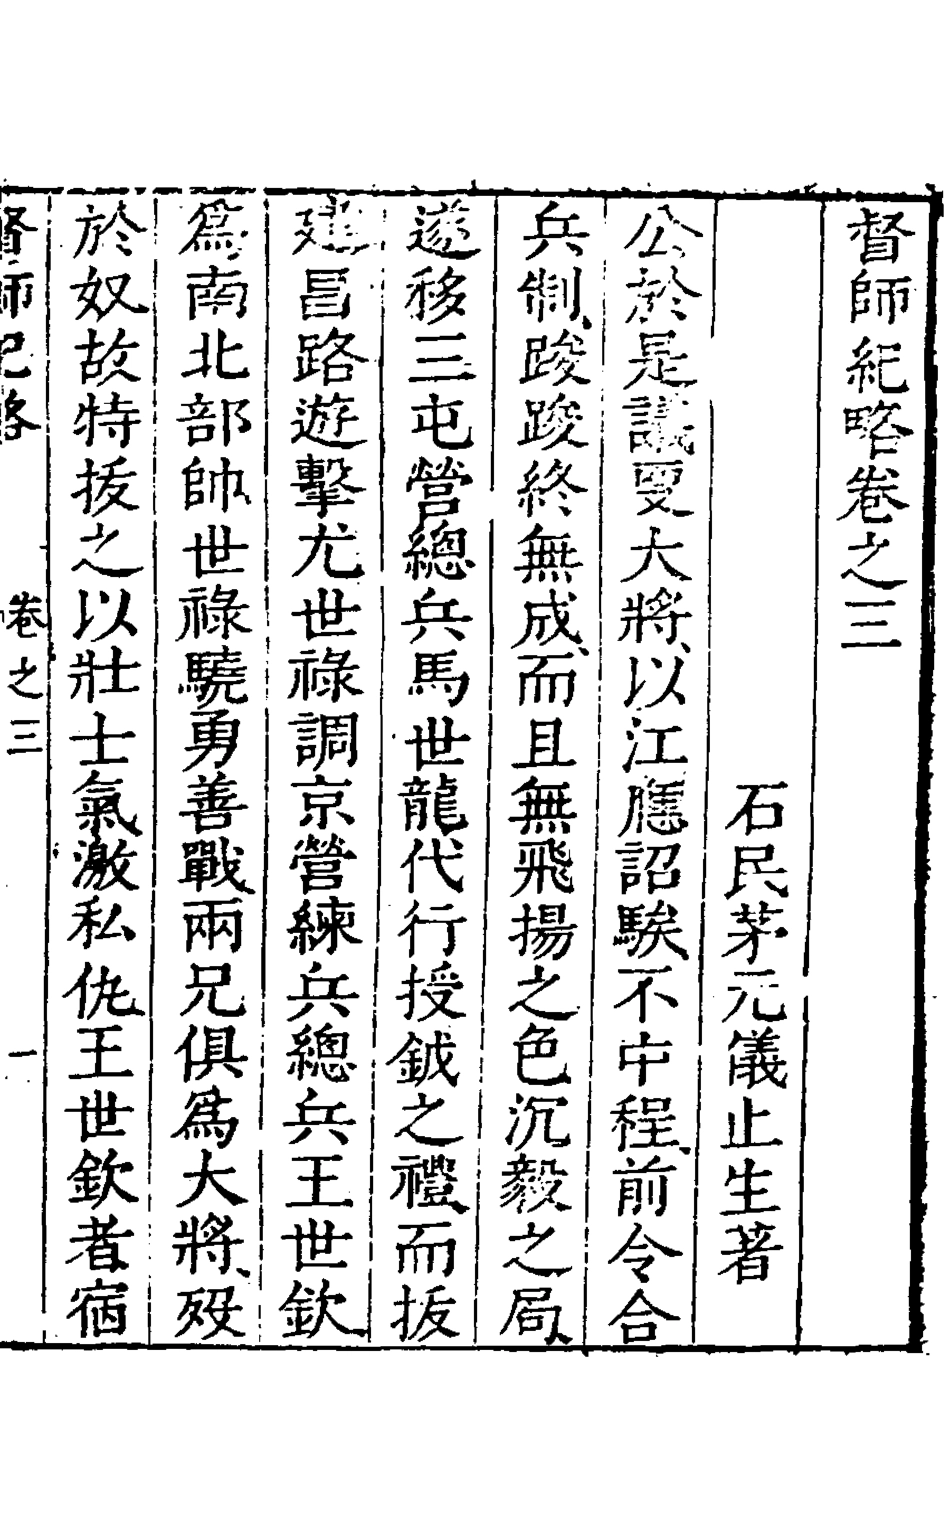 督師紀略卷之三
石民茅元儀止生著
公於是議更大將以江應詔騃不中程前令合
兵制踆踆終無成而且無飛揚之色沉毅之局
遂移三屯營總兵馬世龍代行授鉞之禮而拔
建昌路遊擊尤世祿調京營練兵總兵王世欽
爲南北部帥世祿驍勇善戰兩兄俱爲大將歿
於奴故特拔之以壯士氣激私仇王世欽者宿
督師紀略 卷之三 一